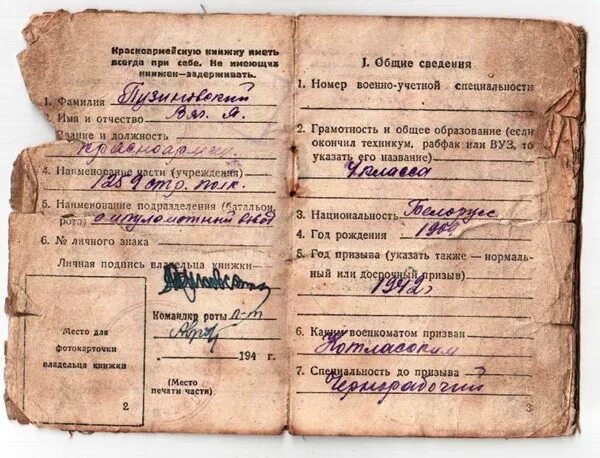 Красноармейскую книжку иметь
всегда при себе. Не имеющих
книжек—задерживать.
1. Фамилия Пузиновский
2. Имя и отчество Вяч. Я.
Звание и должность
красноармеец
4. Наименование части (учреждения)
1259 стр. полк.
5. Наименование подразделения (батальон,
рота) ампуломётный взвод
6. № личного знака
Личная подпись владельца книжки
Командир роты л-т
Место для
фотокарточки
владельца книжки
194 г.
(Место
печати части)
2
I. Общие сведения
1. Номер военно-учетной специальности
2. Грамотность и общее образование (если
окончил техникум, рабфак или ВУЗ, то
указать его название)
4 класса
3. Национальность Белорус
4. Год рождения 1909
5. Год призыва (указать также — нормаль-
ный или досрочный призыв)
1942г
6. Каким военкоматом призван
Котласским
7. Специальность до призыва
Чернорабочий
3